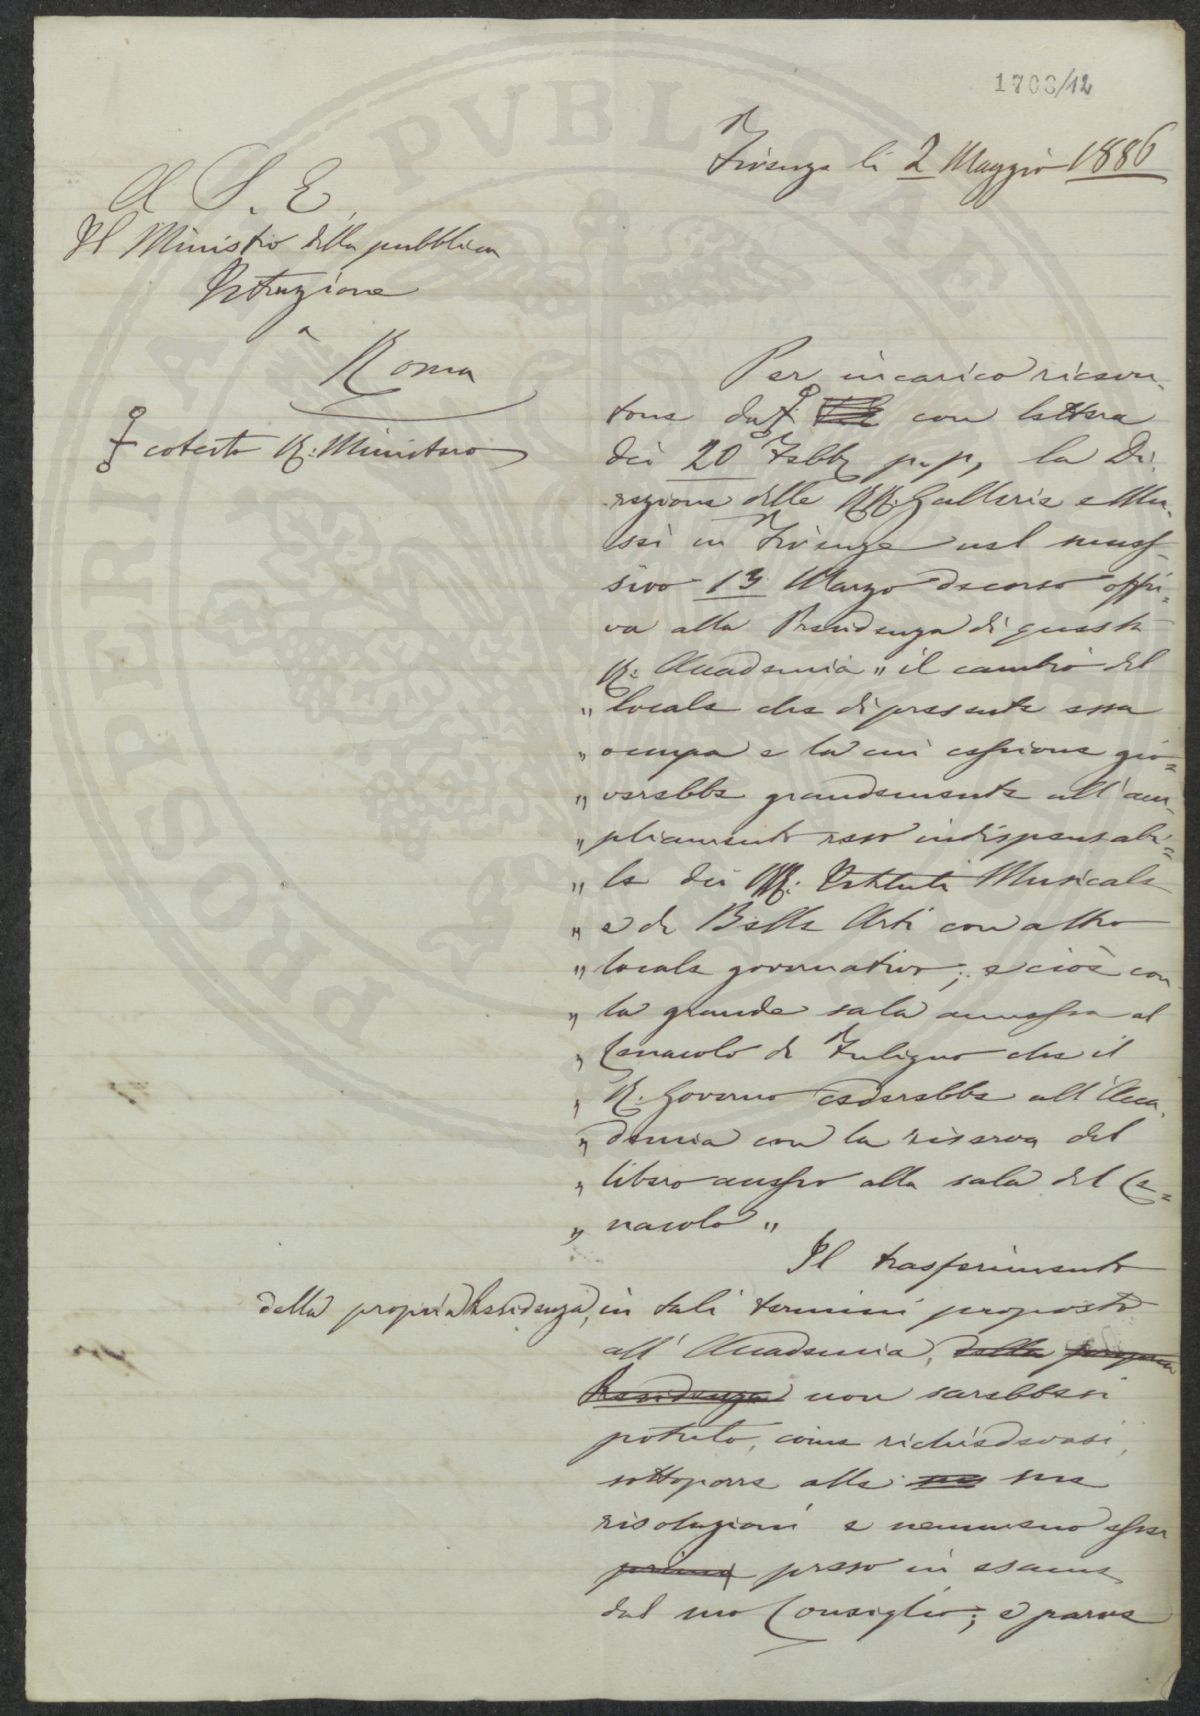 1703/12
Firenze li 2 Maggio 1886
A S. E.
Il Ministro della pubblica
Istruzione
a
Roma
Per incarico ricevu-
tone da con lettera
cotesto R: Ministero
dei 20 Febb p.p., la Di-
rezione delle RR. Gallerie e Mu-
sei in Firenze nel
sivo 13 Marzo decorso offri-
va alla Presidenza di questa
R: Accademia „ il cambio del
„ locale che di presente essa
„ occupa e la cui cessione gio=
„ verebbe grandemente all'am-
„ pliamento reso indispensabi=
„ le dei RR. Istituti Musicale
„ e di Belle Arti con altro
„ locale governativo; e cioè con
„ la grande sala annessa al
„ Cenacolo di Fuligno che il
„ R. Governo cederebbe all'Acca-
„ demia con la riserva del
„ libero accesso alla sala del Ce=
„ nacolo „
Il trasferimento
della propria Residenza, in tali termini proposto
all'Accademia, della propria
Residenza non sarebbesi
potuto, come richiedevasi,
sottoporre alle sue
risoluzioni e nemmeno esser
prima preso in esame
dal suo Consiglio; e parve
PROSPERITA PVBLICAE